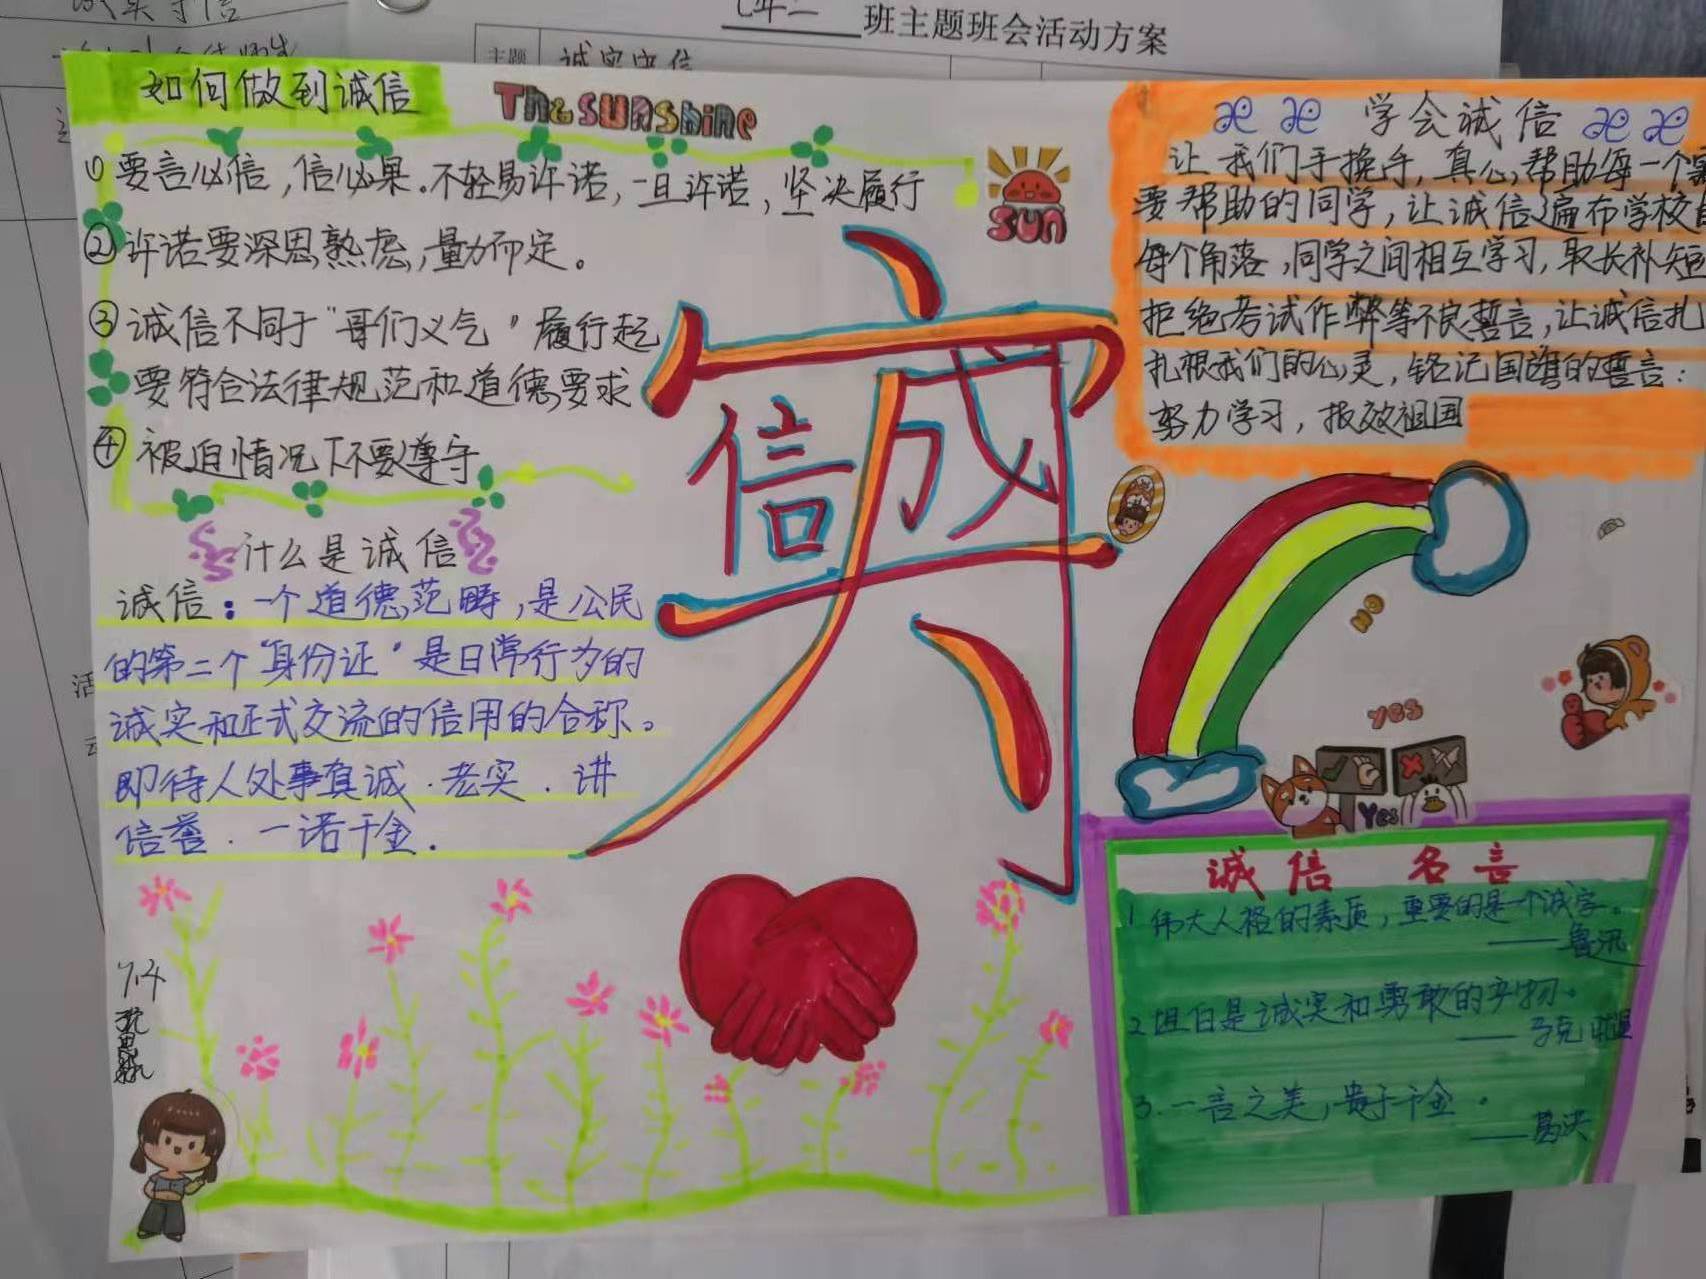 班主题班会活动方案
主题
诚实守信
如何做到诚信
The SUNShine
①要言必信，信必果。不轻易许诺，一旦许诺，坚决履行
②许诺要深思熟虑，量力而定。
③诚信不同于"哥们义气"履行起
要符合法律规范和道德要求
④被迫情况下不要遵守
什么是诚信
诚信：一个道德范畴，是公民
的第二个"身份证"是日常行为的
诚实和正式交流的信用的合称。
即待人处事真诚.老实.讲
信誉.一诺千金.
7.4
SUN
诚信
学会诚信
让我们手挽手，真心帮助每一个需
要帮助的同学，让诚信遍布学校
每个角落，同学之间相互学习，取长补短
拒绝考试作弊等不良誓言，让诚信扎
扎根我们的心灵，铭记国旗的誓言：
努力学习，报效祖国
NO
yes
Yes
诚信 名言
1.伟大人格的素质，重要的是一个诚字。
——鲁迅
2.坦白是诚实和勇敢的产物.
——马克 吐温
3.一言之美，贵于千金.
——葛洪